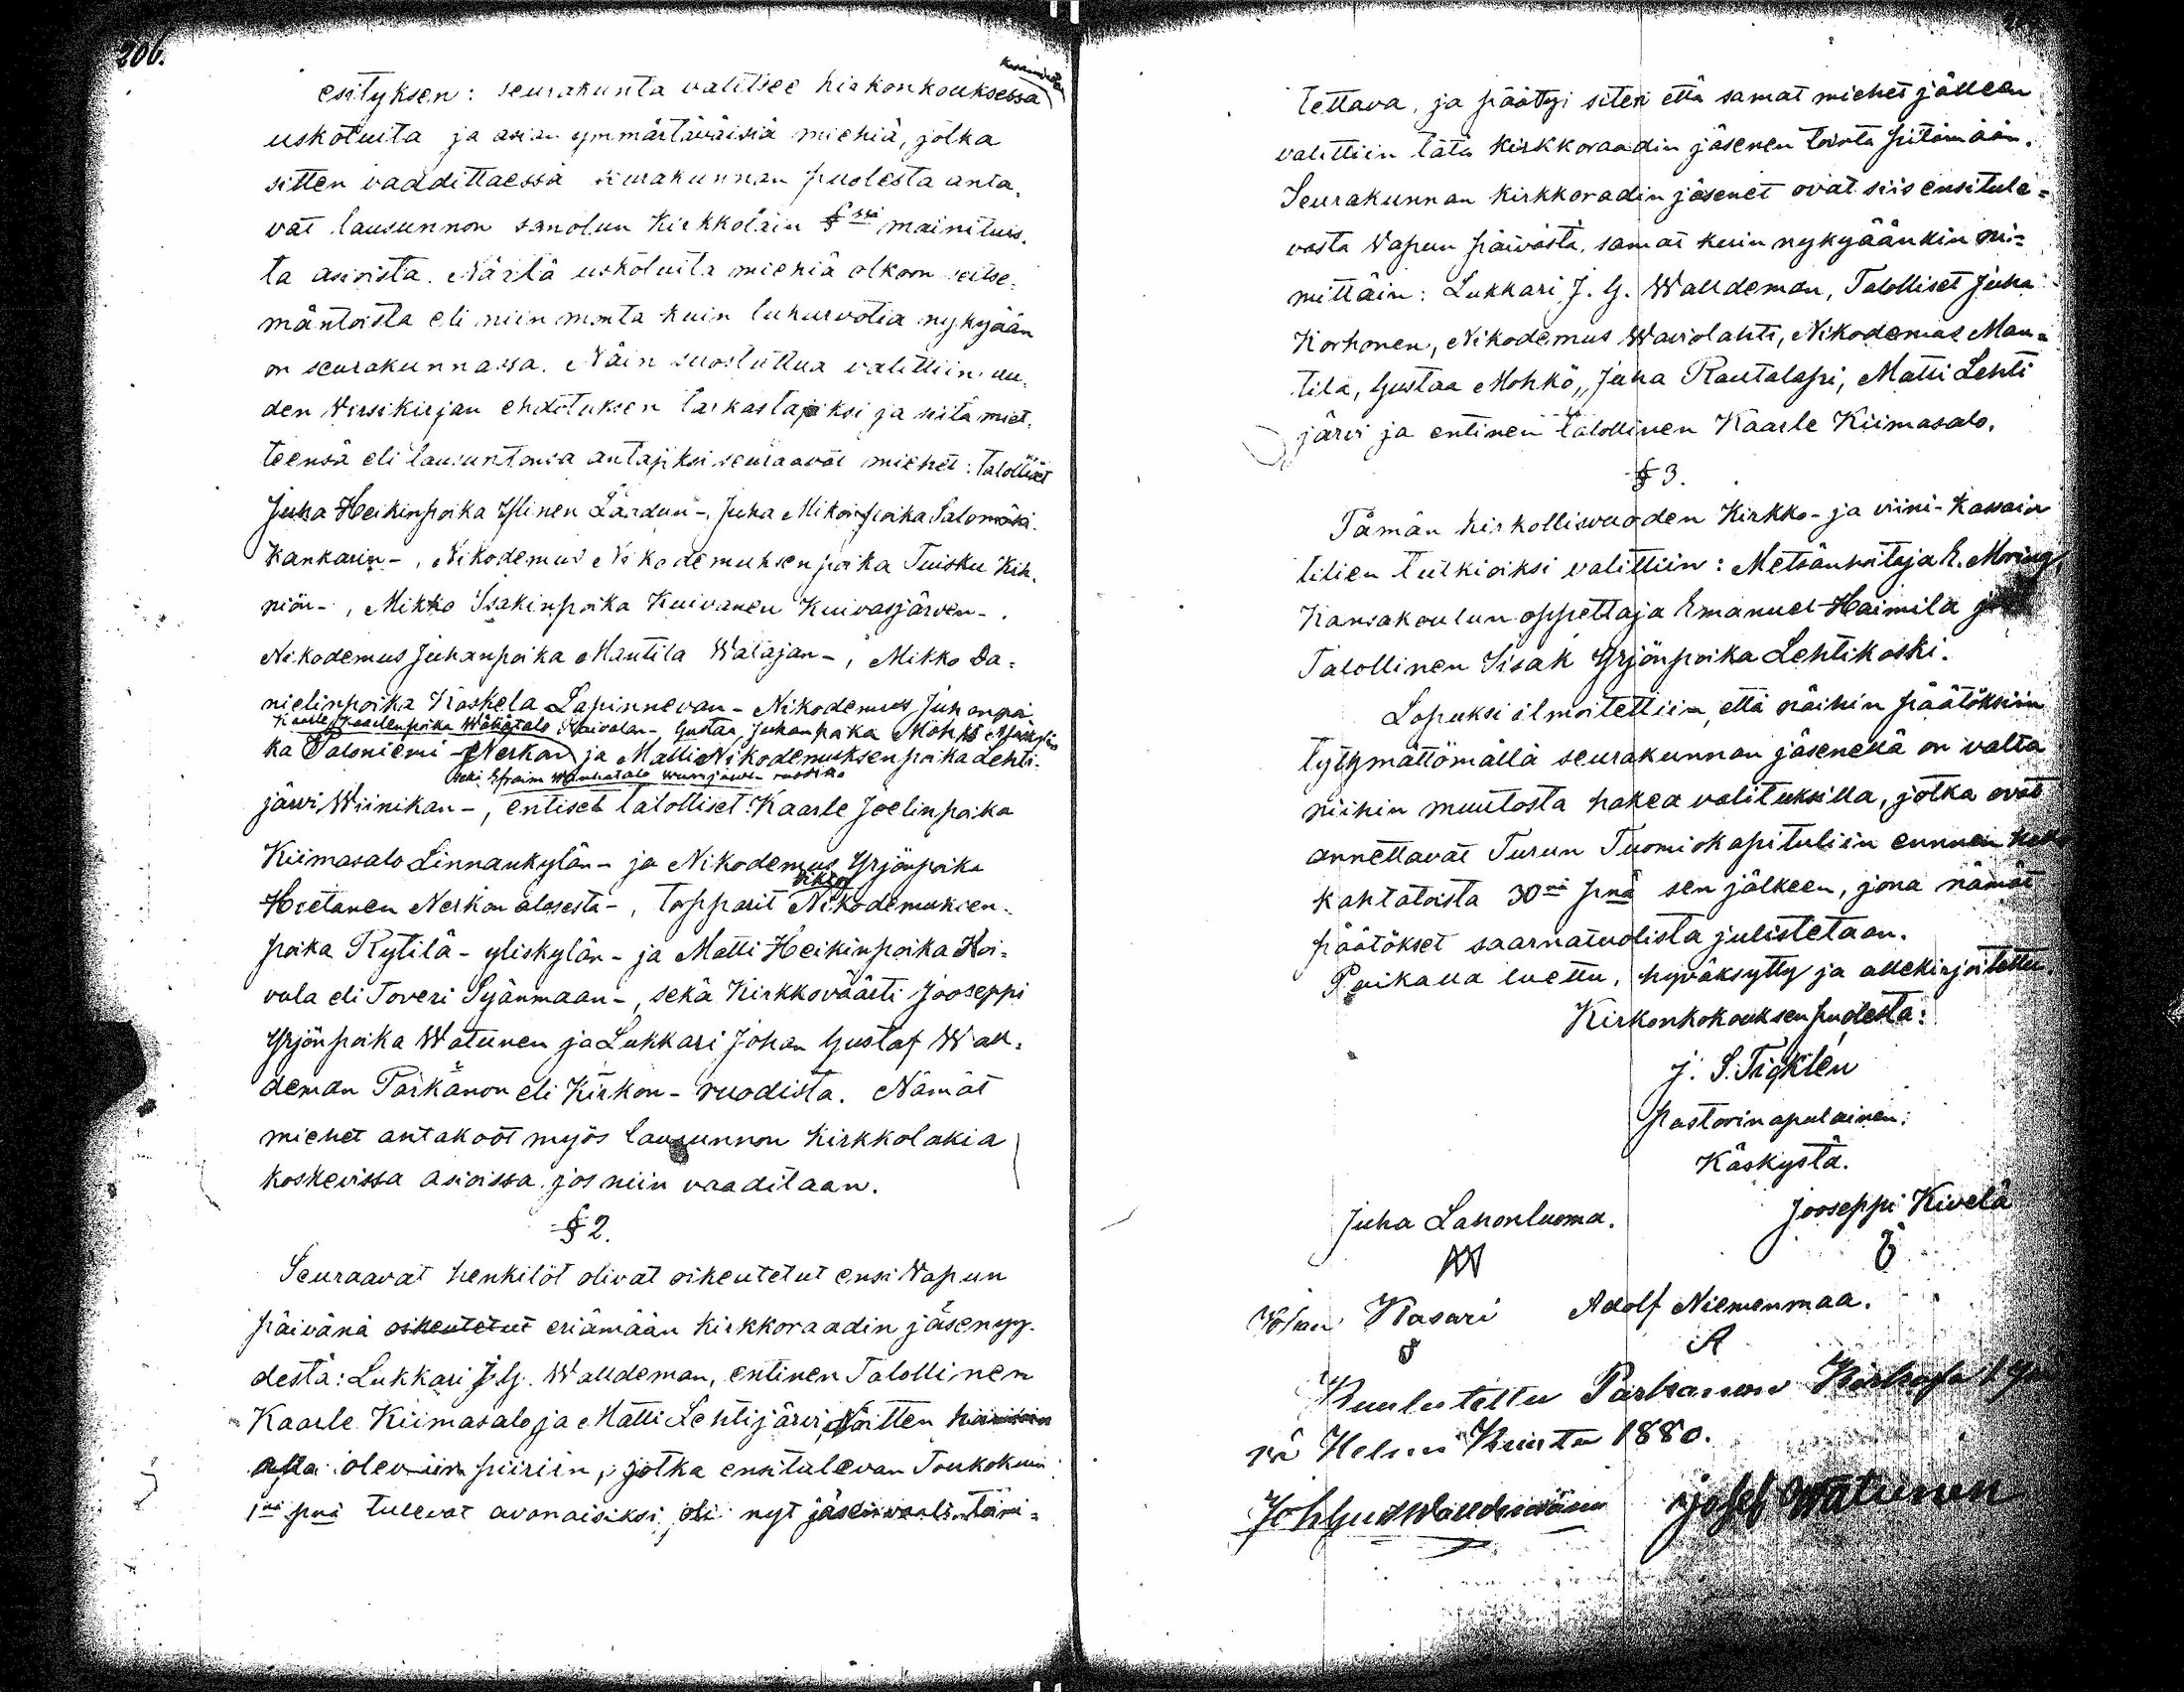 206.
esityksen: seurakunta valitsee kirkonkouksessa
uskotuita ja asian ymmärtäväisiä miehiä, jotka
sitten vaadittaessa seurakunnan puolesta anta-
vat lausunnon sanotun Kirkkolain §ssä mainituis-
ta asioista. Näitä uskotuita miehiä olkoon seitse-
mäntoista eli niin monta kuin lukuruotia nykyään
on seurakunnassa. Näin suostuttua valittiin uu-
den Virsikirjan ehdotuksen tarkastajiksi ja siitä miet-
teensä eli lausuntonsa antajiksi seuraavat miehet: talolliset
Juha Heikinpoika Ylinen Laardun-, Juha Mikonpoika Salomäki
Kankarin-, Nikodemus Nikodemuksenpoika Tuisku Kih-
niön-, Mikko Isakinpoika Kuivanen Kuivasjärven-.
Nikodemus Juhanpoika Mantila Walajan-, Mikko Da-
nielinpoika Koskela Lapinnevan- Nikodemus Juhanpoi-
Kaarle Kaarlenpoika Wähätalo Raivalan- Gustaa Juhanpoika Mohkö
ka Paloniemi -Nerkon ja Matti Nikodemuksenpoika Lehti-
sekä Efraim Wanhatalo Wuorijärven ruodista
järvi Wiinikan-, entiset talolliset Kaarle Joelinpoika
Kiimasalo Linnankylän- ja Nikodemus Yrjönpoika
Viktor
Hietanen Nerkon alasesta-, Topparit Nikodemuksen-
poika Rytilä - yliskylän- ja Matti Heikinpoika Koi-
vula eli Toveri Syänmaan-, sekä Kirkkoväärti Jooseppi
Yrjönpoika Watunen ja Lukkari Johan Gustaf Wall-
deman Parkanon eli Kirkon- ruodista. Nämät
miehet antakoot myös lausunnon Kirkkolakia
koskevissa asioissa, jos niin vaaditaan.
§ 2.
Seuraavat henkilöt olivat oikeutetut ensi Vapun
päivänä oikeutetut eriämään kirkkoraadin jäsenyy-
destä: Lukkari J. G. Walldeman, entinen Talollinen
Kaarle Kiimasalo ja Matti Lehtijärvi. Näitten
alla oleviin piiriin, jotka ensitulevan Toukokuun
1nä pnä tulevat avonaisiksi, oli nyt jäsenvaali toimi-
tettava, ja päätyi siten että samat miehet jälleen
valittiin tätä kirkkoraadin jäsenen tointa pitämään.
Seurakunnan kirkkoradin jäsenet ovat siis ensitule-
vasta Vapun päivästä, samat kuin nykyäänkin ni-
mittäin: Lukkari J. G. Walldeman, Talolliset Juha
Korhonen, Nikodemus Waviolahti, Nikodemus Man-
tila, Gustaa Mohkö, Juha Rautalapi, Matti Lehti
järvi ja entinen talollinen Kaarle Kiimasalo.
§ 3.
Tämän kirkollisvuoden Kirkko- ja viini-kassain
tilien tutkioiksi valittiin: Metsänhoitaja E. Moring,
Kansakoulun oppettaja Emanuel Haimila ja
Talollinen Iisak Yrjönpoika Lehtikoski.
Lopuksi ilmoitettiin, että näihin päätöksiin
tyttymättömällä seurakunnan jäsenellä on valta
niihin muutosta hakea valituksilla, jotka ovat
annettavat Turun Tuomiokapituliin ennen kello
kahtatoista 30nä pnä sen jälkeen, jona nämät
päätökset saarnatuolista julistetaan.
Paikalla luettu, hyväksytty ja allekirjoitettu.
Kirkonkokouksen puolesta:
J. S. Tigklén
Pastorin apulainen.
Käskystä.
Juha Lahonluoma.
Jooseppi Kivelä
Johan Kasari
Adolf Niemenmaa.
Kuulutettu Parkanon Kirkosa 1 p
nä Helmi Kuuta 1880.
Joh Gust Walldemån
Josef Watunen